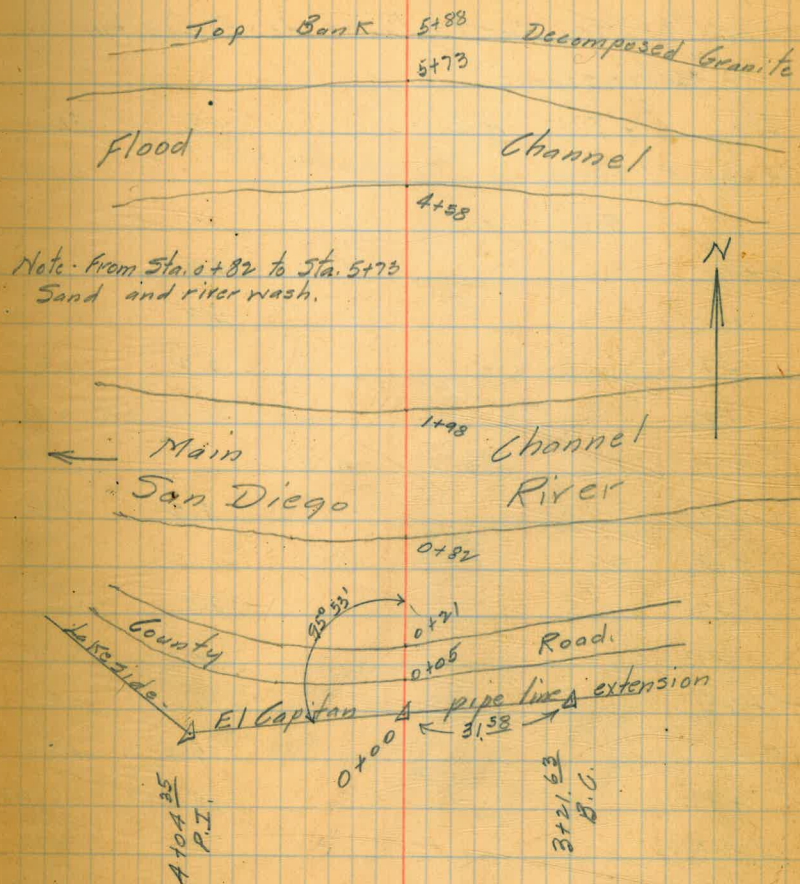 Top Bank 5+88 Decomposed Granite
5+73
Flood Channel
4+58
Note - From Sta. 0+82 to Sta. 5+73
Sand and river wash.
N
1+98
Main Channel
San Diego River
0+82
95° 53'
0+21
County Road.
0+05
Lakeside-
El Capitan pipe line extension
31.58
0+00
4+04 35
P.I.
3+21.63
B.C.